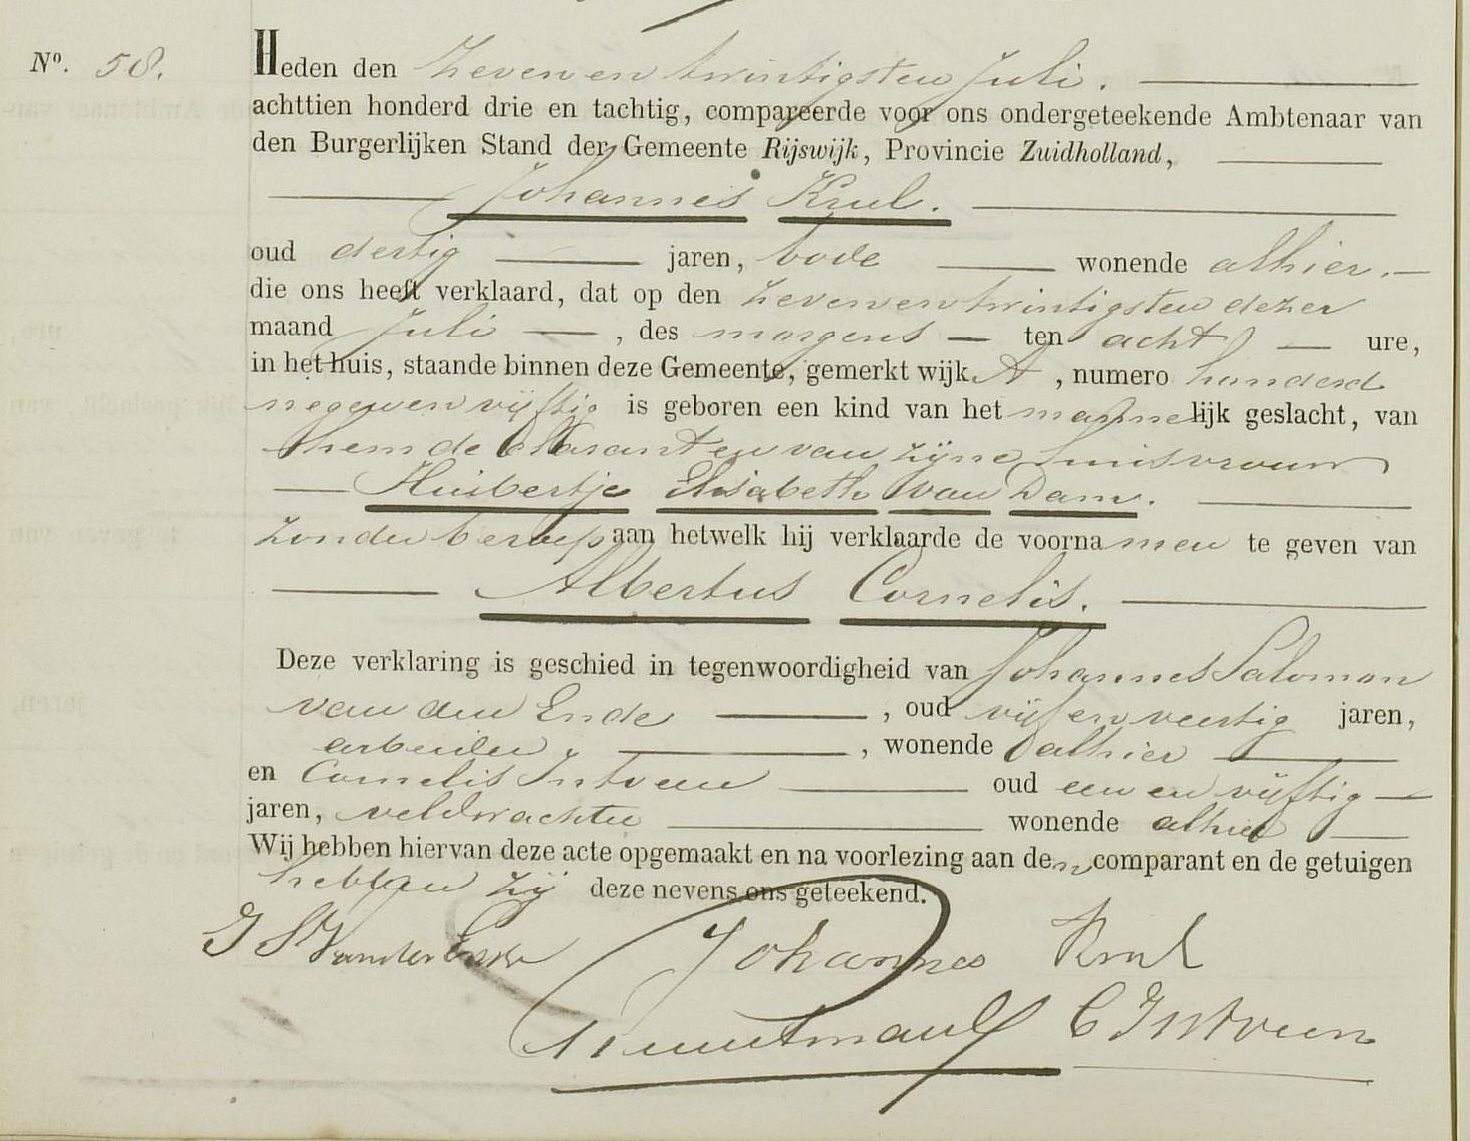 No. 58.
Heden den Zeven en twintigsten Juli.
achttien honderd drie en tachtig, compareerde voor ons ondergeteekende Ambtenaar van
den Burgerlijken Stand der Gemeente Rijswijk, Provincie Zuidholland,
Johannes Krul.
oud dertig jaren, bode wonende alhier.
die ons heeft verklaard, dat op den zeven en twintigsten dezer
maand Juli, des morgens ten acht ure,
in het huis, staande binnen deze Gemeente, gemerkt wijk A, numero honderd
negen en vijftig is geboren een kind van het mannelijk geslacht, van
hem declarant en van zijne huisvrouw
Huibertje Elisabeth van Dam.
zonder beroep aan hetwelk hij verklaarde de voornamen te geven van
Albertus Cornelis.
Deze verklaring is geschied in tegenwoordigheid van Johannes Salomon
van den Ende, oud vijf en veertig jaren,
arbeider, wonende alhier
en Cornelis Intveen oud een en vijftig
jaren, veldwachter wonende alhier
Wij hebben hiervan deze acte opgemaakt en na voorlezing aan den comparant en de getuigen
hebben zij deze nevens ons geteekend.
J S Van den Ende Johannes Krul
C Intveen